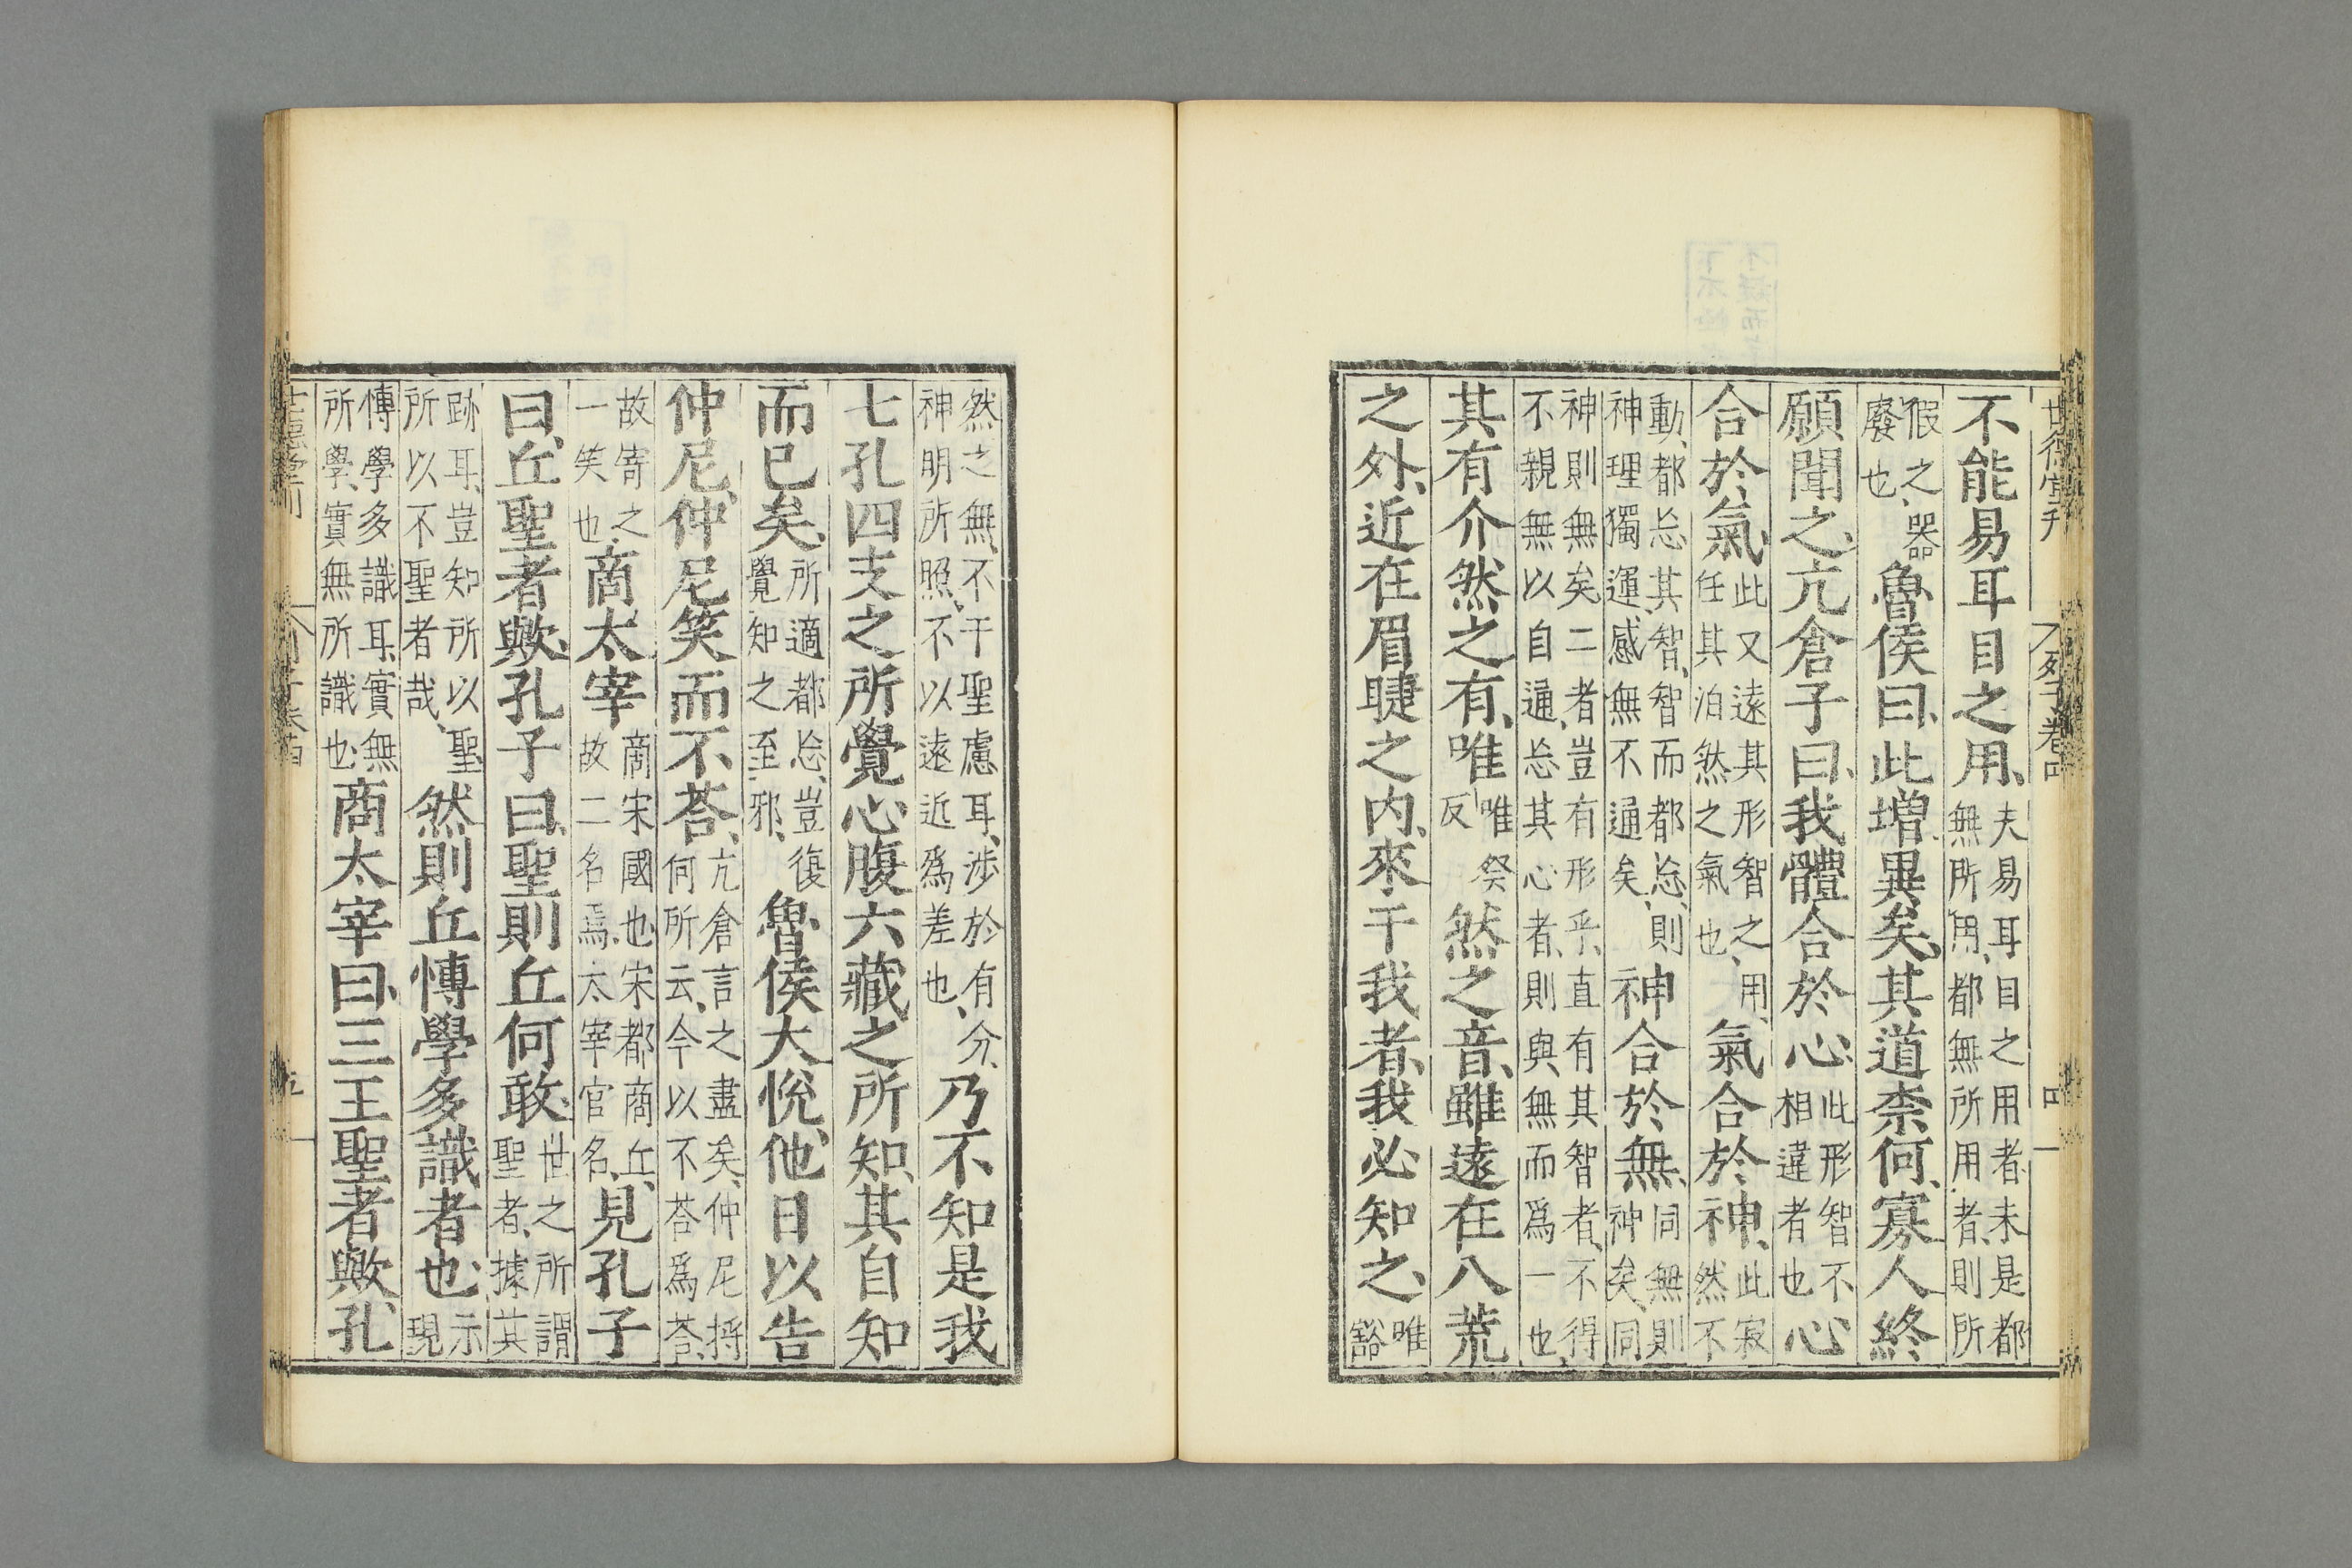 世德堂刊 列子卷四 四
不能易耳目之用、夫易耳目之用者未是都無所用、都無所用者、則所
假之、器廢也、魯侯曰、此增異矣、其道柰何、寡人終
願聞之、亢倉子曰、我體合於心、此形智不相違者也心
合於氣、此又遠其形智之、用、任其泊然之氣也、氣合於神、此寂然不
動、都忘其智、智而都忘、則神理獨運、感無不通矣、神合於無、同無則神矣、同
神則無矣二者豈有形乎、直有其智者、不得不親無以自通、忘其心者、則與無而爲一也、
其有介然之有、唯唯癸反然之音、雖遠在八荒
之外、近在眉睫之内、來干我者、我必知之、唯豁
然之無、不干聖慮耳、涉於有分、神明所照、不以遠近爲差也、乃不知是我
七孔四支之所覺心腹六藏之所知、其自知
而已矣、所適都忘、豈復覺知之至邪、魯侯大悅、他日以告
仲尼、仲尼笑而不荅、亢倉言之盡矣、仲尼将何所云、今以不荅爲荅、
故寄之一笑也、商太宰商宋國也、宋都商丘、故二名焉、太宰官名、見孔子
曰、丘聖者歟、孔子曰、聖則丘何敢、世之所謂聖者、據其
跡耳、豈知所以聖所以不聖者哉、然則丘愽學多識者也、示現
愽學多識耳、實無所學、實無所識也、商太宰曰、三王聖者歟、孔